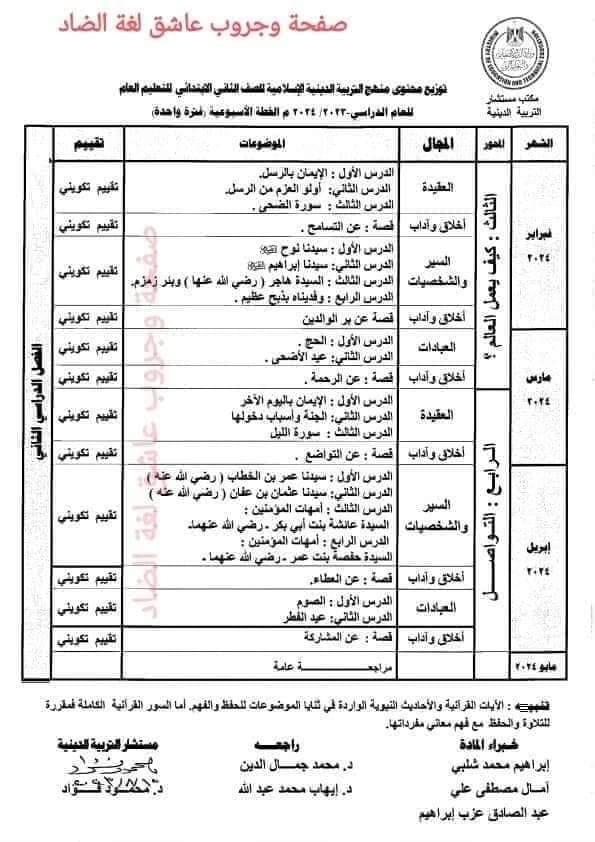 صفحة وجروب عاشق لغة الضاد
مكتب مستشار
التربية الدينية
توزيع محتوى منهج التربية الدينية الإسلامية للصف الثاني الابتدائي للتعليم العام
للعام الدراسي ٢٠٢٣/ ٢٠٢٤ م الخطة الأسبوعية (فترة واحدة)
الشهر المحور المجال الموضوعات تقييم
الفصل الدراسي الثاني
فبراير
٢٠٢٤
الثالث : كيف يعمل العالم ؟
العقيدة
الدرس الأول : الإيمان بالرسل.
الدرس الثاني: أولو العزم من الرسل.
الدرس الثالث : سورة الضحى .
تقييم تكويني
أخلاق وآداب قصة : عن التسامح . تقييم تكويني
السير
والشخصيات
الدرس الأول : سيدنا نوح
الدرس الثاني: سيدنا إبراهيم
الدرس الثالث : السيدة هاجر ( رضي الله عنها ) وبئر زمزم.
الدرس الرابع : وفديناه بذبح عظيم .
تقييم تكويني
أخلاق وآداب قصة : عن بر الوالدين تقييم تكويني
مارس
٢٠٢٤
العبادات
الدرس الأول : الحج .
الدرس الثاني: عيد الأضحى .
تقييم تكويني
أخلاق وآداب قصة : عن الرحمة . تقييم تكويني
الرابع : التواصل
العقيدة
الدرس الأول : الإيمان باليوم الآخر
الدرس الثاني: الجنة وأسباب دخولها
الدرس الثالث : سورة الليل
تقييم تكويني
أخلاق وآداب قصة : عن التواضع . تقييم تكويني
إبريل
٢٠٢٤
السير
والشخصيات
الدرس الأول : سيدنا عمر بن الخطاب ( رضي الله عنه )
الدرس الثاني: سيدنا عثمان بن عفان ( رضي الله عنه )
الدرس الثالث : أمهات المؤمنين :
السيدة عائشة بنت أبي بكر - رضي الله عنهما-
الدرس الرابع : أمهات المؤمنين :
السيدة حفصة بنت عمر - رضي الله عنهما.
تقييم تكويني
أخلاق وآداب قصة : عن العطاء. تقييم تكويني
العبادات
الدرس الأول : الصوم
الدرس الثاني: عيد الفطر
تقييم تكويني
أخلاق وآداب قصة : عن المشاركة تقييم تكويني
مايو ٢٠٢٤ مراجعة عامة
صفحة وجروب عاشق لغة الضاد
تنبيه : الآيات القرآنية والأحاديث النبوية الواردة في ثنايا الموضوعات للحفظ والفهم. أما السور القرآنية الكاملة فمقررة
للتلاوة والحفظ مع فهم معاني مفرداتها.
خبراء المادة راجعه مستشار التربية الدينية
إبراهيم محمد شلبي د. محمد جمال الدين
آمال مصطفى علي د. إيهاب محمد عبد الله د. محمود فؤاد
عبد الصادق عزب إبراهيم